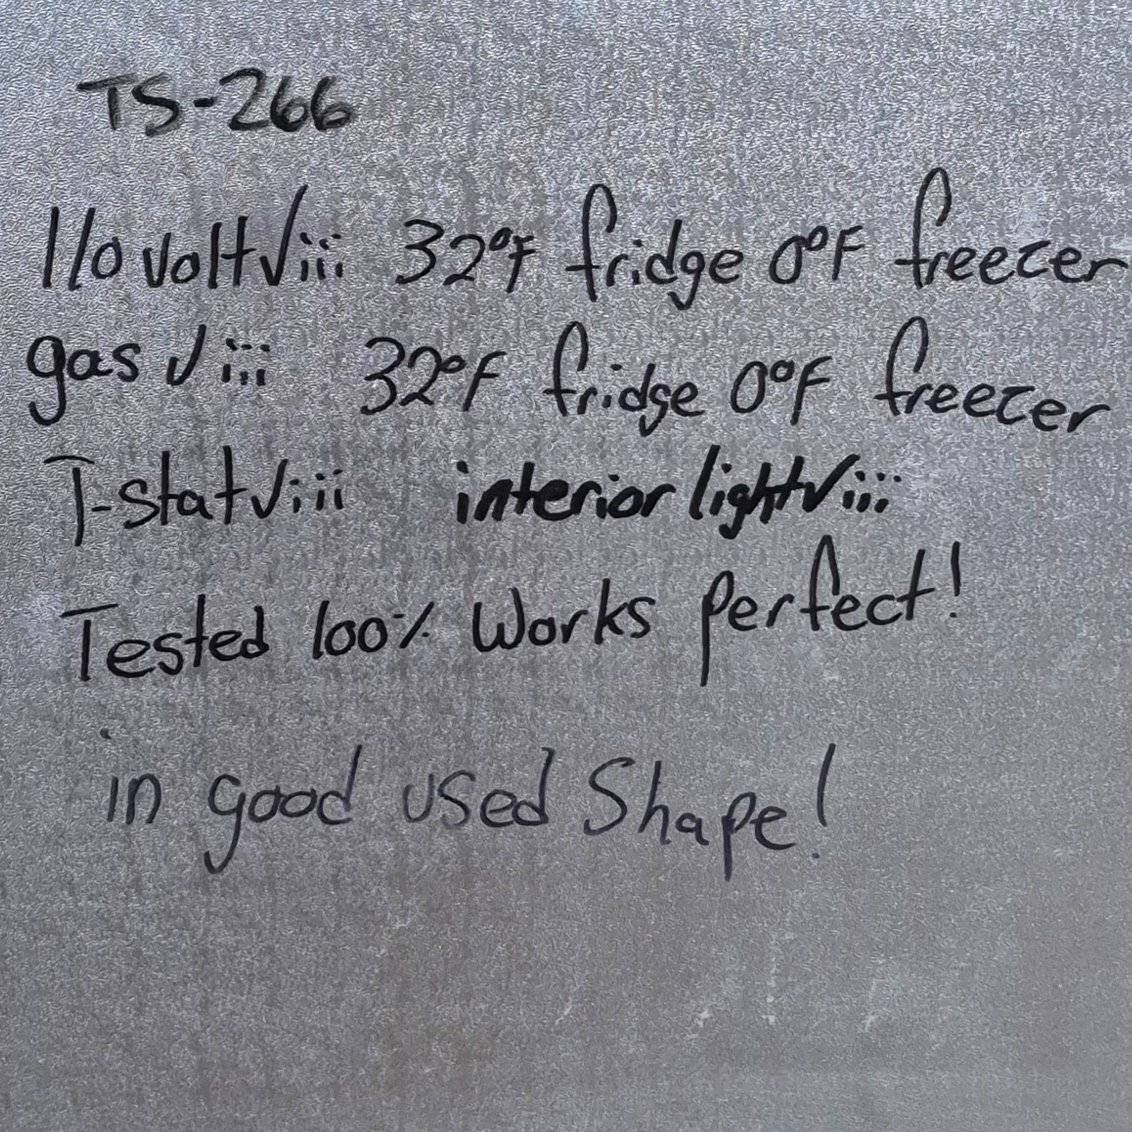 TS-266
110 volt √iii 32°F fridge 0°F freezer
gas √iii 32°F fridge 0°F freezer
T-stat √iii interior light √iii
Tested 100% Works perfect!
in good used Shape!